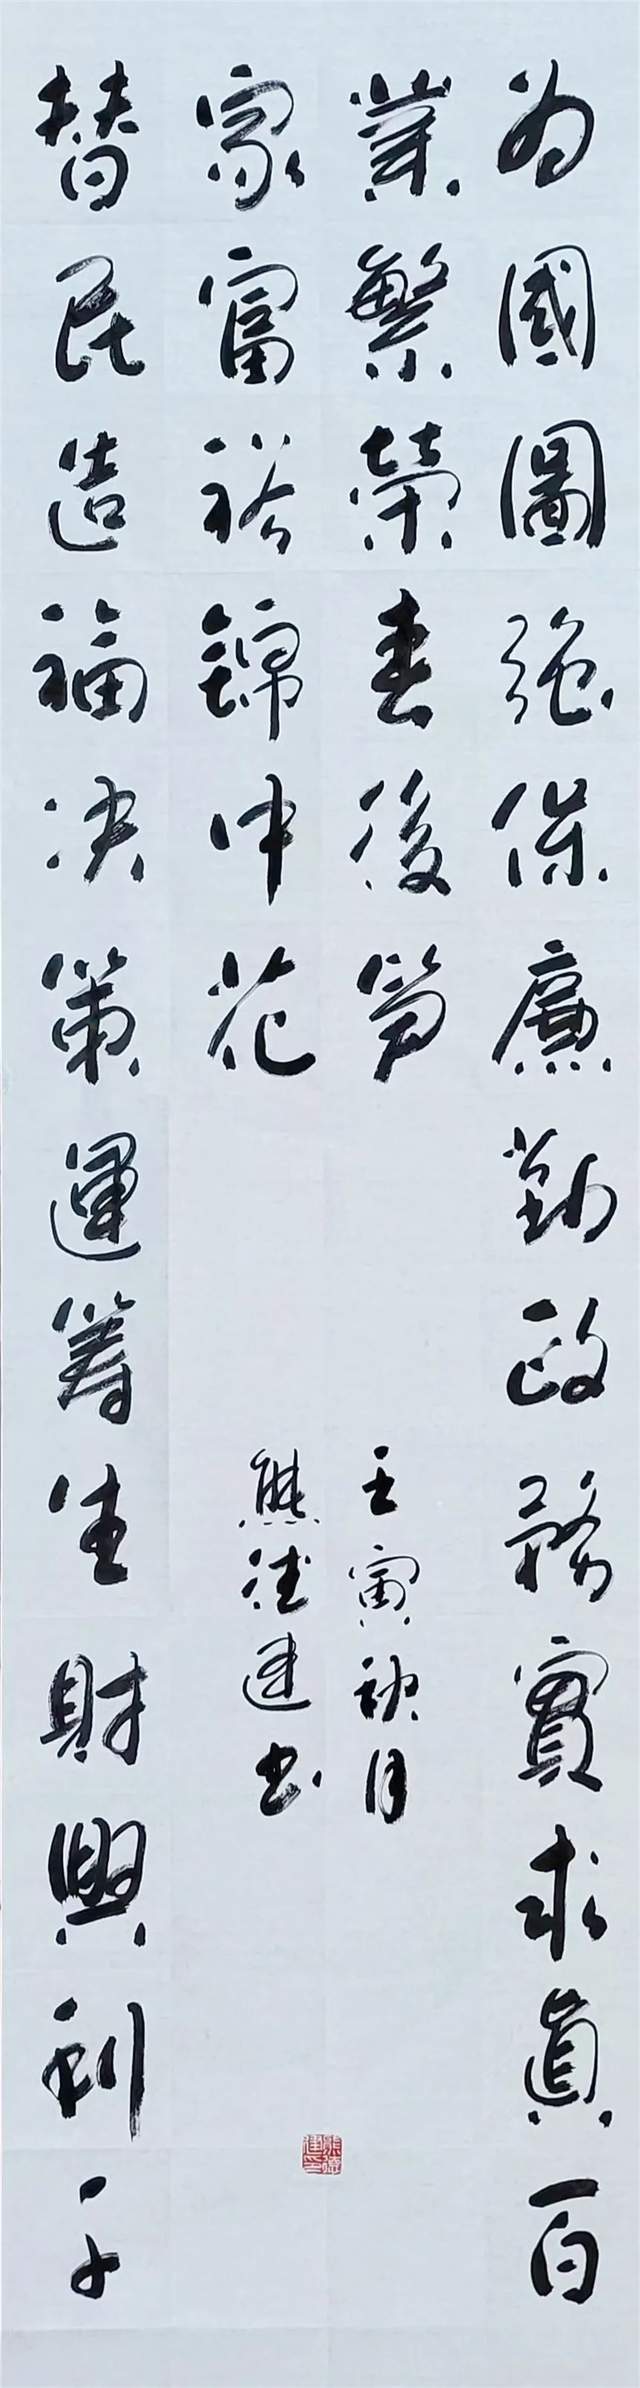 为國圖強保廉勤政務實求真百
業繁榮春後笋
替民造福决策運籌生財興利千
家富裕錦中花
壬寅秋月
熊德建书
熊德建印